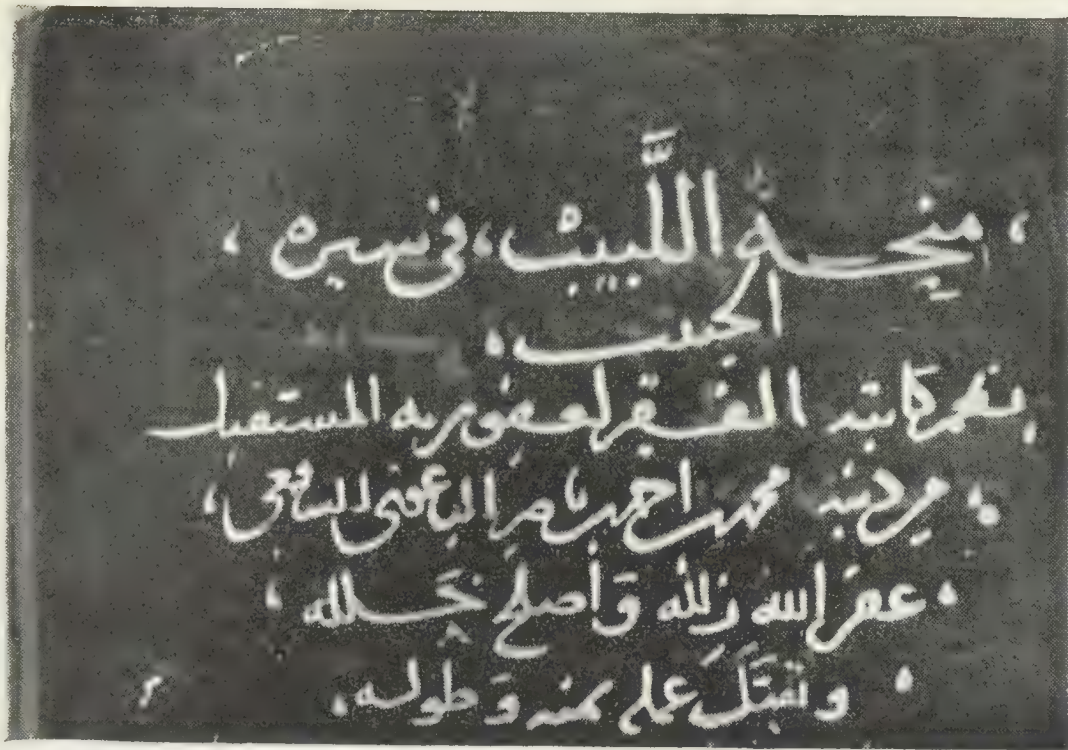 منحة اللَّبيب، في سيره
الحبيب
نظم كاتبه الفقير لعفو ربه المستقيل
من ذنبه محمد احمد ناصر الباعوني الشافعي
غفر الله زلله وَأصلح خلله
وتقبَّل عمله بمنه وَطوله